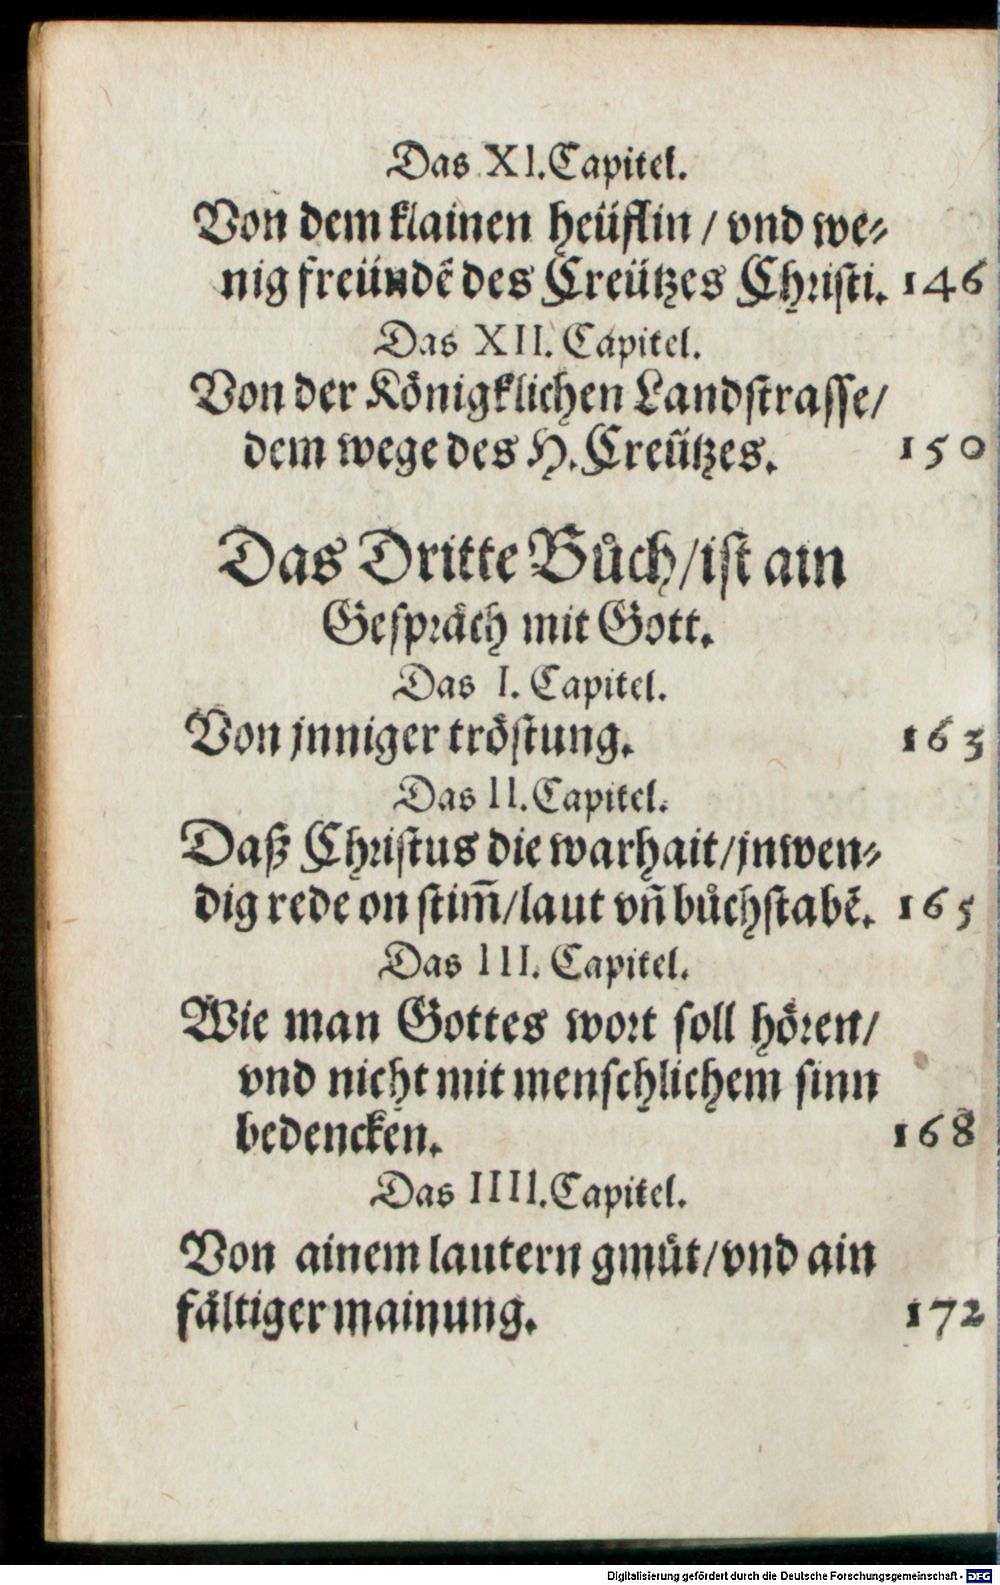 Das XI. Capitel.
Von dem klainen heüflin / vnd we⸗
nig freündẽ des Creützes Christi. 146
Das XII. Capitel.
Von der Königklichen Landstrasse/
dem wege des H. Creützes. 150
Das Dritte Bůch/ist ain
Gespräch mit Gott.
Das I. Capitel.
Von jnniger tröstung. 163
Das II. Capitel.
Daß Christus die warhait/jnwen⸗
dig rede on stim̃/laut vñ bůchstabẽ. 165
Das III. Capitel.
Wie man Gottes wort soll hören/
vnd nicht mit menschlichem sinn
bedencken. 168
Das IIII. Capitel.
Von ainem lautern gmüt/vnd ain
fältiger mainung. 172
Digitalisierung gefördert durch die Deutsche Forschungsgemeinschaft - DFG